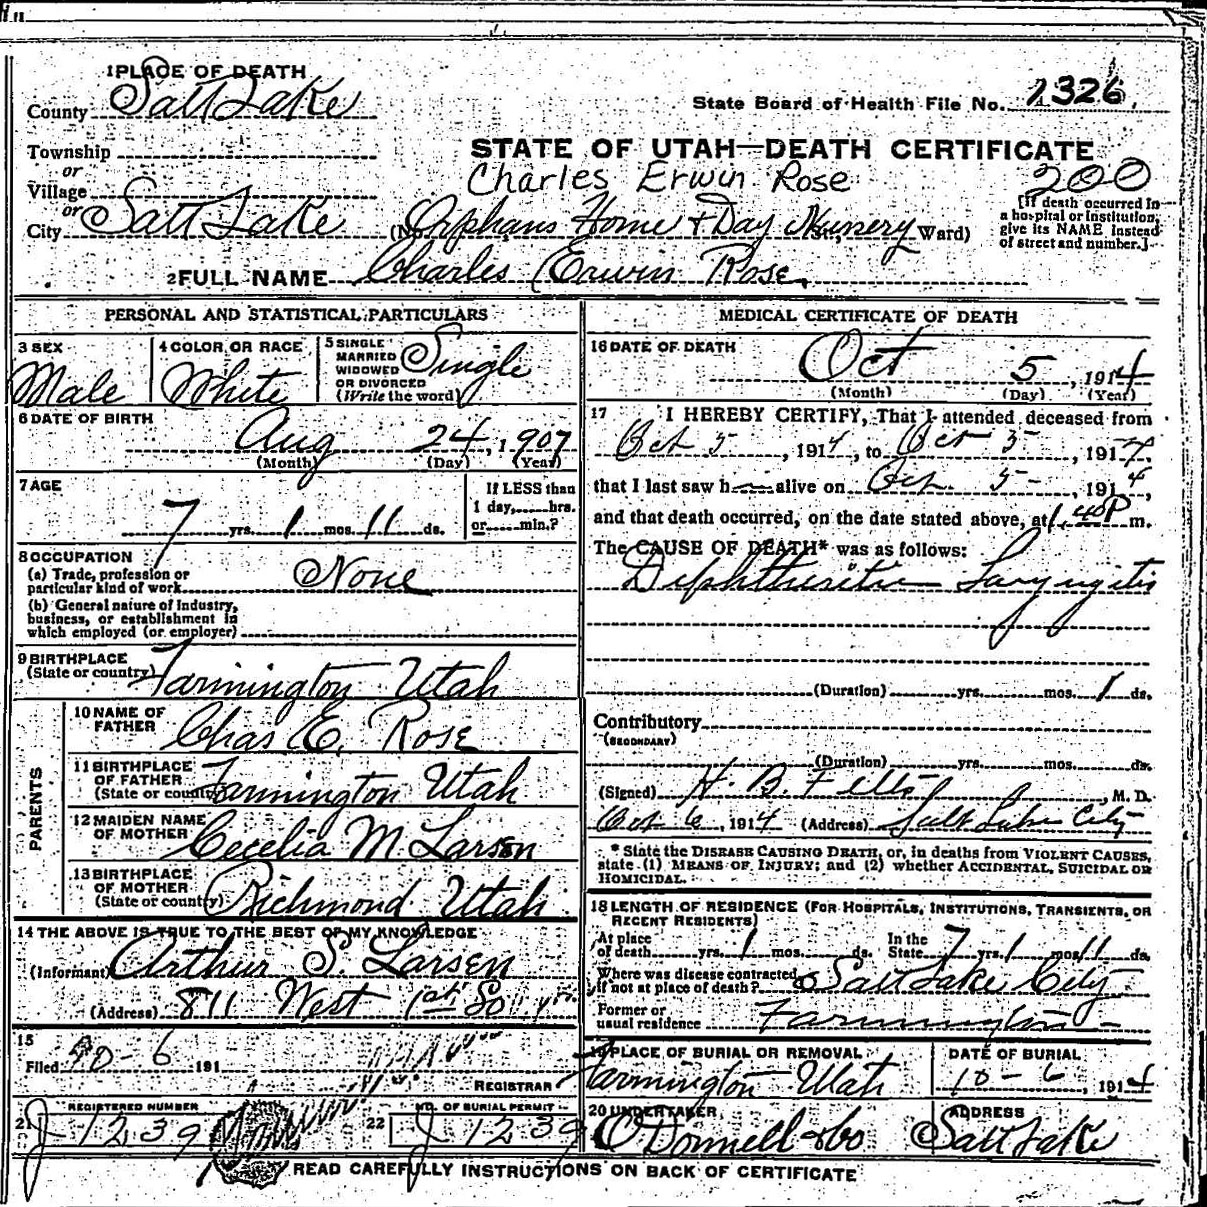 1 PLACE OF DEATH
County Salt Lake
State Board of Health File No. 1326
Township
or
Village
or
City Salt Lake
STATE OF UTAH—DEATH CERTIFICATE
Charles Erwin Rose
200
(No. Orphans Home & Day Nursery Ward)
[If death occurred in a hospital or institution, give its NAME instead of street and number.]
2 FULL NAME Charles Erwin Rose
PERSONAL AND STATISTICAL PARTICULARS
3 SEX
Male
4 COLOR OR RACE
White
5 SINGLE
MARRIED
WIDOWED
OR DIVORCED
(Write the word)
Single
6 DATE OF BIRTH
Aug 24, 1907
(Month) (Day) (Year)
7 AGE
7 yrs. 1 mos. 11 ds.
If LESS than
1 day,......hrs.
or......min.?
8 OCCUPATION
(a) Trade, profession or
particular kind of work None
(b) General nature of industry,
business, or establishment in
which employed (or employer)
9 BIRTHPLACE
(State or country) Farmington Utah
PARENTS
10 NAME OF
FATHER
Chas E. Rose
11 BIRTHPLACE
OF FATHER
(State or country) Farmington Utah
12 MAIDEN NAME
OF MOTHER
Cecelia M Larsen
13 BIRTHPLACE
OF MOTHER
(State or country) Richmond Utah
14 THE ABOVE IS TRUE TO THE BEST OF MY KNOWLEDGE
(Informant) Arthur S. Larsen
(Address) 811 West 1st So
15
Filed 10-6 191
REGISTRAR
REGISTERED NUMBER
21 J 1239
NO. OF BURIAL PERMIT
22 J 1239
MEDICAL CERTIFICATE OF DEATH
16 DATE OF DEATH
Oct 5, 1914
(Month) (Day) (Year)
17 I HEREBY CERTIFY, That I attended deceased from
Oct 5, 1914, to Oct 5, 1914,
that I last saw h alive on Oct. 5, 1914,
and that death occurred, on the date stated above, at 1.40 P m.
The CAUSE OF DEATH* was as follows:
Diphtheritic Laryngitis
(Duration) yrs. mos. 1 ds.
Contributory
(SECONDARY)
(Duration) yrs. mos. ds.
(Signed) H. B. Felts, M. D.
Oct 6, 1914 (Address) Salt Lake City
* State the DISEASE CAUSING DEATH, or, in deaths from VIOLENT CAUSES,
state (1) MEANS OF INJURY; and (2) whether ACCIDENTAL, SUICIDAL OR
HOMICIDAL.
18 LENGTH OF RESIDENCE (FOR HOSPITALS, INSTITUTIONS, TRANSIENTS, OR
RECENT RESIDENTS)
At place
of death yrs. 1 mos. ds. In the
State 7 yrs. 1 mos. 11 ds.
Where was disease contracted,
if not at place of death? Salt Lake City
Former or
usual residence Farmington
19 PLACE OF BURIAL OR REMOVAL
Farmington Utah
DATE OF BURIAL
10-6, 1914
20 UNDERTAKER
O'Donnell & Co
ADDRESS
Salt Lake
READ CAREFULLY INSTRUCTIONS ON BACK OF CERTIFICATE